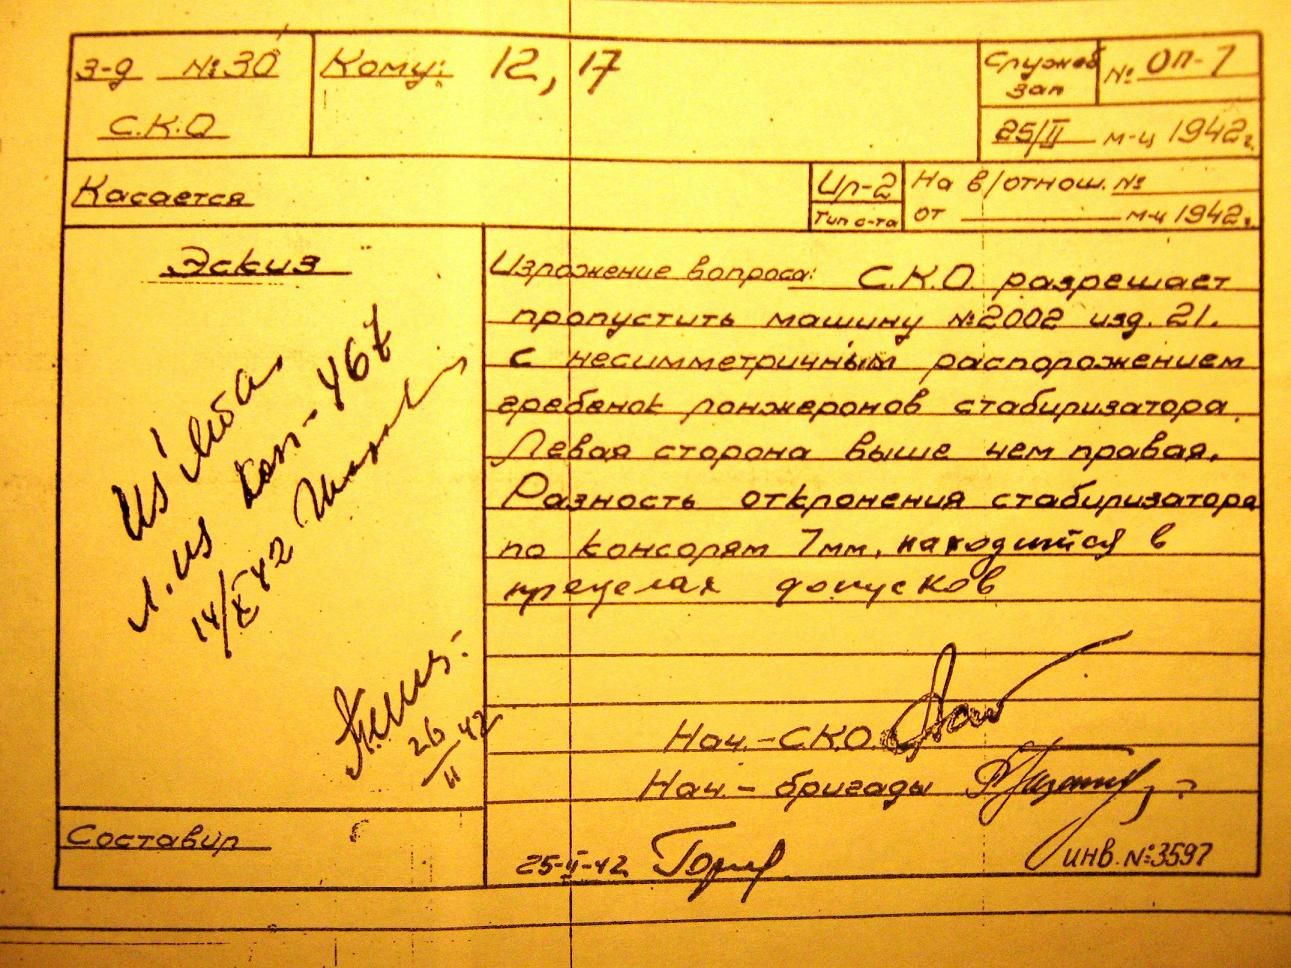 з-д №30
С.К.О
Кому: 12, 17
Служеб
зап
№ ОП-7
25/II м-ц 1942г.
Касается
Ил-2
Тип с-та
На в/отнош. №
от м-ц 1942г.
Эскиз
14/X 42
26/II 42
Составил
Изложение вопроса: С.К.О. разрешает
пропустить машину №2002 изд. 21.
с несимметричным расположением
гребенок лонжеронов стабилизатора.
Левая сторона выше чем правая.
Разность отклонения стабилизатора
по консолям 7мм, находится в
пределах допусков
Нач.-С.К.О.
Нач.- бригады
25-II-42
инв. №3597